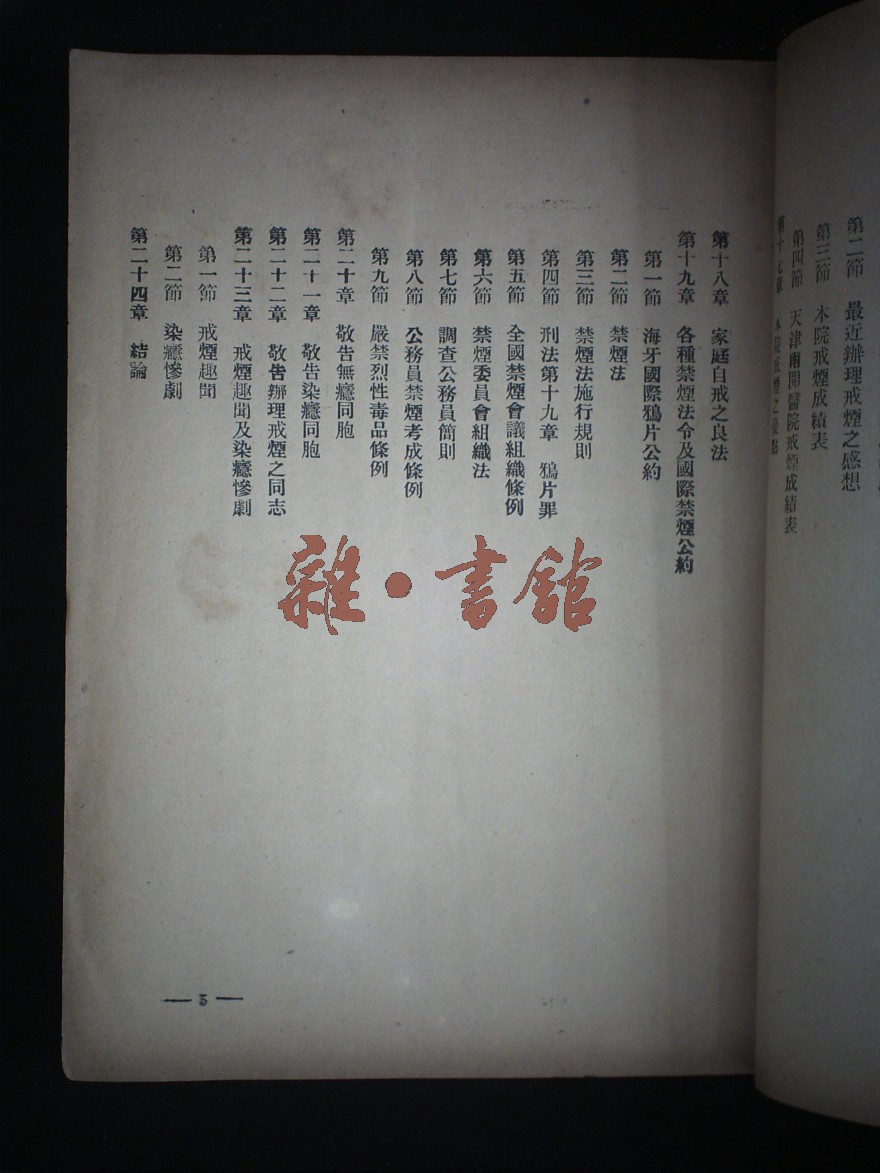 第二節 最近辦理戒煙之感想
第三節 本院戒煙成績表
第四節 天津南開醫院戒煙成績表
第十七章 本院戒煙之優點
第十八章 家庭自戒之良法
第十九章 各種禁煙法令及國際禁煙公約
第一節 海牙國際鴉片公約
第二節 禁煙法
第三節 禁煙法施行規則
第四節 刑法第十九章 鴉片罪
第五節 全國禁煙會議組織條例
第六節 禁煙委員會組織法
第七節 調查公務員簡則
第八節 公務員禁煙考成條例
第九節 嚴禁烈性毒品條例
第二十章 敬告無癮同胞
第二十一章 敬告染癮同胞
第二十二章 敬告辦理戒煙之同志
第二十三章 戒煙趣聞及染癮慘劇
第一節 戒煙趣聞
第二節 染癮慘劇
第二十四章 結論
雜·書館
— 5 —